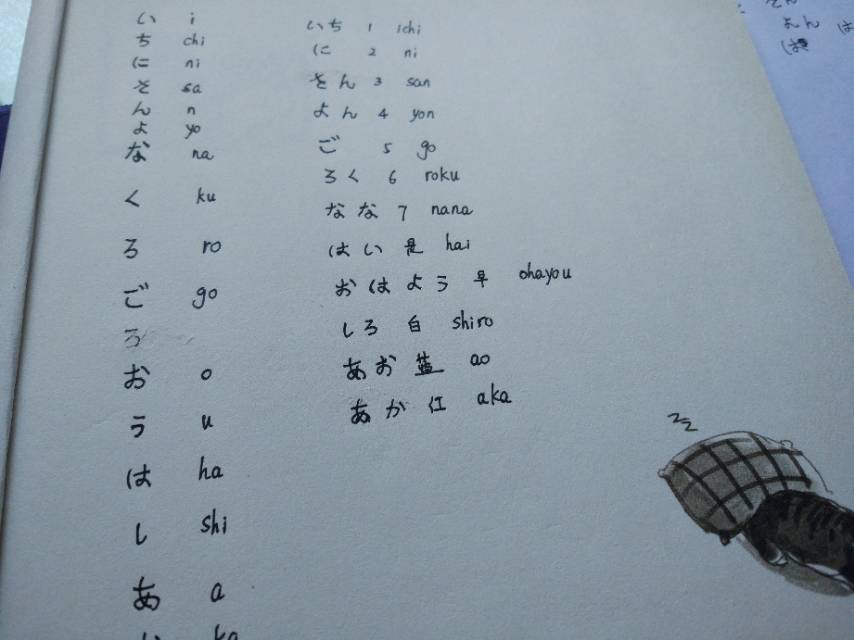 い i
ち chi
に ni
そ sa
ん n
よ yo
な na
く ku
ろ ro
ご go
ろ
お o
う u
は ha
し shi
あ a
か ka
いち 1 ichi
に 2 ni
そん 3 san
よん 4 yon
ご 5 go
ろく 6 roku
なな 7 nana
はい 是 hai
おはよう 早 ohayou
しろ 白 shiro
あお 蓝 ao
あか 红 aka
zz
そん
よん は